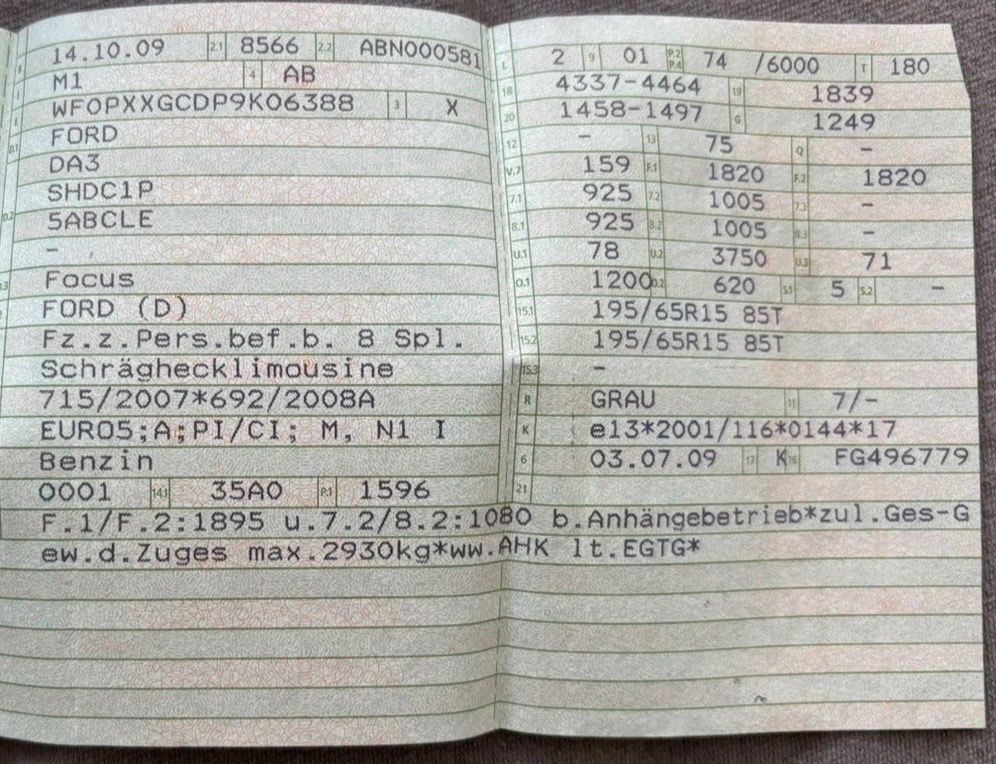 14.10.09 2.1 8566 2.2 ABN000581
M1 4 AB
E WF0PXXGCDP9K06388 3 X
D.1 FORD
DA3
SHDC1P
D.2 5ABCLE
-
D.3 Focus
FORD (D)
Fz.z.Pers.bef.b. 8 Spl.
Schräghecklimousine
715/2007*692/2008A
EURO5;A;PI/CI; M, N1 I
Benzin
0001 14.1 35A0 P.1 1596
L 2 9 01 P.2 P.4 74 /6000 T 180
18 4337-4464 19 1839
20 1458-1497 G 1249
12 - 13 75 Q -
V.7 159 F.1 1820 F.2 1820
7.1 925 7.2 1005 7.3 -
8.1 925 8.2 1005 8.3 -
U.1 78 U.2 3750 U.3 71
O.1 1200 O.2 620 S.1 5 S.2 -
15.1 195/65R15 85T
15.2 195/65R15 85T
15.3 -
R GRAU 11 7/-
K e13*2001/116*0144*17
6 03.07.09 17 K 16 FG496779
21
F.1/F.2:1895 u.7.2/8.2:1080 b.Anhängebetrieb*zul.Ges-G
ew.d.Zuges max.2930kg*ww.AHK lt.EGTG*